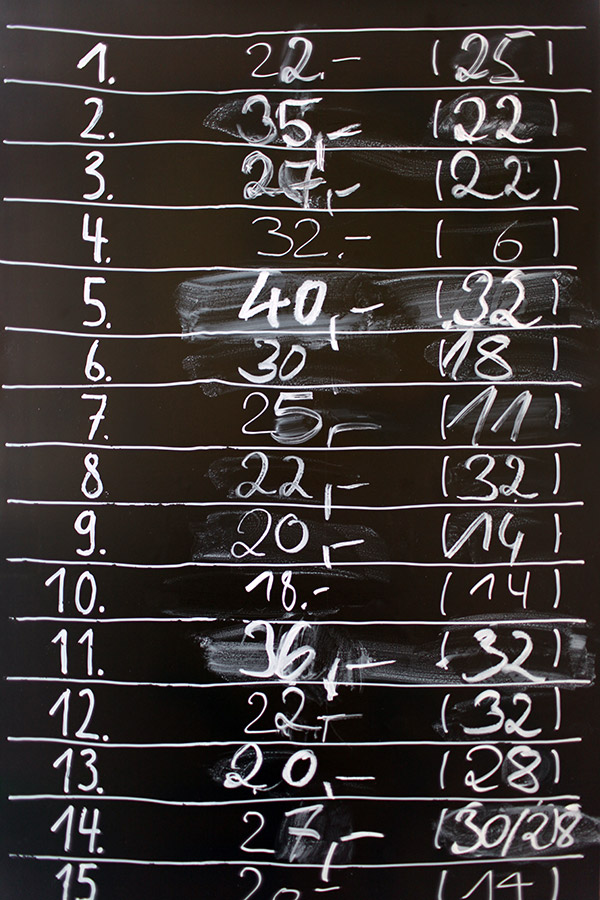 1. 22.- (25)
2. 35,- (22)
3. 27,- (22)
4. 32.- ( 6 )
5. 40,- (32)
6. 30 (18)
7. 25,- (11)
8 22,- (32)
9. 20,- (14)
10. 18.- (14)
11. 36,- (32)
12. 22,- (32)
13. 20,- (28)
14. 27,- (30/28)
15 20- (14)